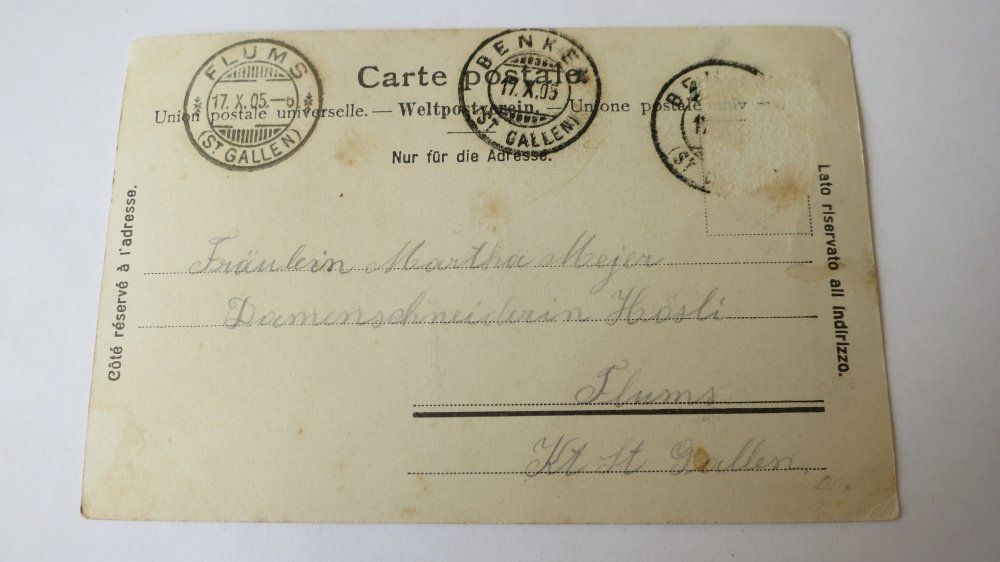 FLUMS
17. X. 05.
(ST GALLEN)
BENKEN
17. X. 05
(ST. GALLEN)
BE
(ST
Carte postale
Union postale universelle. — Weltpostverein. — Unione postale univ
Nur für die Adresse.
Côté réservé à l'adresse.
Lato riservato all indirizzo.
Fräulein Martha Mejer
Damenschneiderin Hösli
Flums
Kt St Gallen.